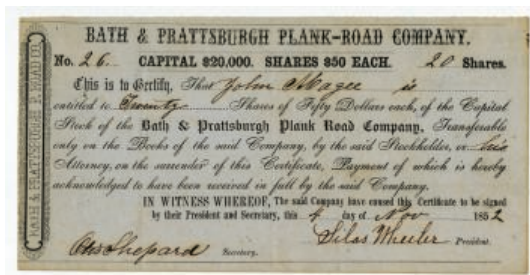 BATH & PRATTSBURGH PLANK-ROAD COMPANY.
No. 26. CAPITAL $20,000. SHARES $50 EACH. 20 Shares.
This is to Certify, That John Magee is
entitled to Twenty Shares of Fifty Dollars each, of the Capital
Stock of the Bath & Prattsburgh Plank Road Company, Transferable
only on the Books of the said Company, by the said Stockholder, or his
Attorney, on the surrender of this Certificate, Payment of which is hereby
acknowledged to have been received in full by the said Company.
IN WITNESS WHEREOF, The said Company have caused this Certificate to be signed
by their President and Secretary, this 4 day of Nov 1852
Shepard Secretary. Silas Wheeler President.
BATH & PRATTSBURGH P. ROAD CO.